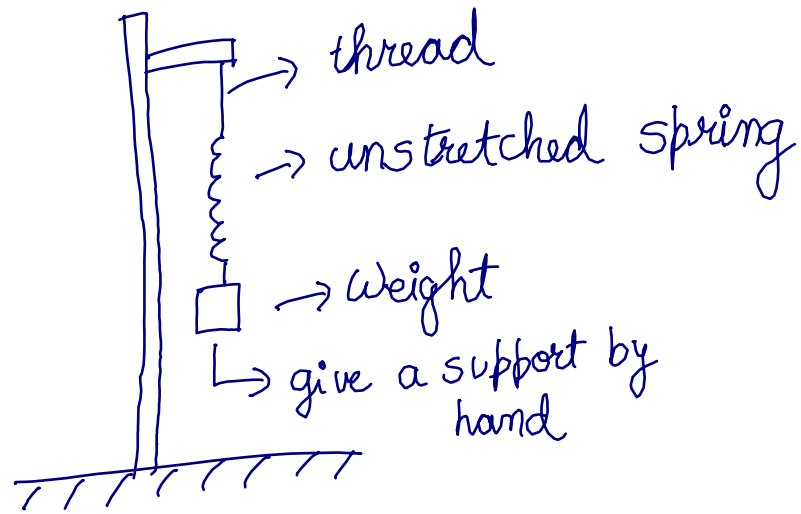 thread
unstretched spring
weight
give a support by
hand